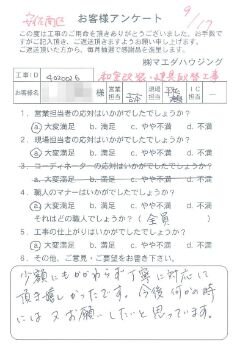 安佐南区
お客様アンケート
9/17
この度は工事のご用命を頂きありがとうございました。お手数で
すがご記入頂き、ご返送頂きますようお願い申し上げます。
ご返送頂いた方から、毎月抽選で感謝品を進呈します。
㈱マエダハウジング
工事:ID 4020026
お客様名 様 営業担当 現場担当 IC担当
1. 営業担当者の応対はいかがでしたでしょうか?
a.大変満足 b.満足 c.やや不満 d.不満
2. 現場担当者の応対はいかがでしたでしょうか?
a.大変満足 b.満足 c.やや不満 d.不満
3. コーディネーターの応対はいかがでしたでしょうか?
a.大変満足 b.満足 c.やや不満 d.不満
4. 職人のマナーはいかがでしたでしょうか?
a.大変満足 b.満足 c.やや不満 d.不満
それはどの職人でしょうか?(全員)
5. 工事の仕上がりはいかがでしたでしょうか?
a.大変満足 b.満足 c.やや不満 d.不満
6. その他、ご意見・ご要望をお書き下さい。
少額にもかかわらず丁寧に対応して
頂き嬉しかったです。今後何かの時
には又お願いしたいと思っています。